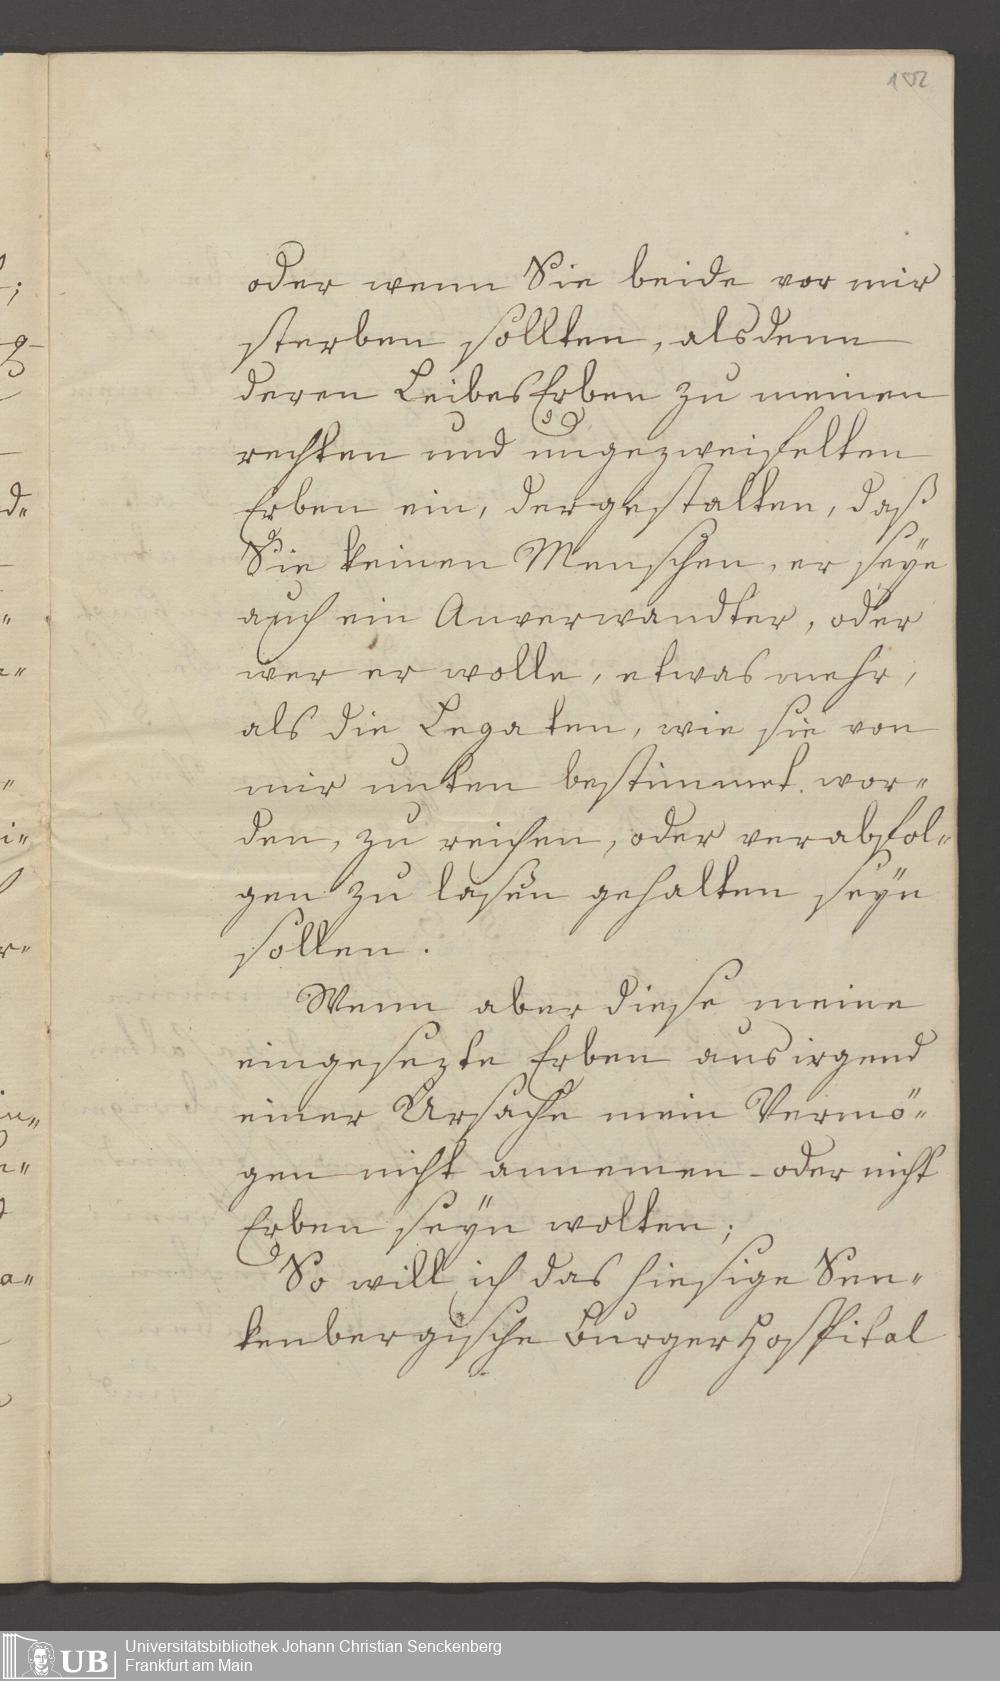 102
oder wenn Sie beide vor mir
sterben sollten, alsdenn
deren LeibesErben zu meinen
rechten und ungezweifelten
Erben ein, dergestalten, daß
Sie keinen Menschen, er seÿe
auch ein Anverwandter, oder
wer er wolle, etwas mehr,
als die Legaten, wie sie von
mir unten bestimmet wor„
den, zu reichen, oder verabfol„
gen zu laßen gehalten seÿn
sollen.
Wenn aber diese meine
eingesezte Erben aus irgend
einer Ursache mein Vermö„
gen nicht annemen oder nicht
Erben seÿn wolten;
So will ich das hiesige Sen„
kenbergische Burger Hospital
UB
Universitätsbibliothek Johann Christian Senckenberg
Frankfurt am Main